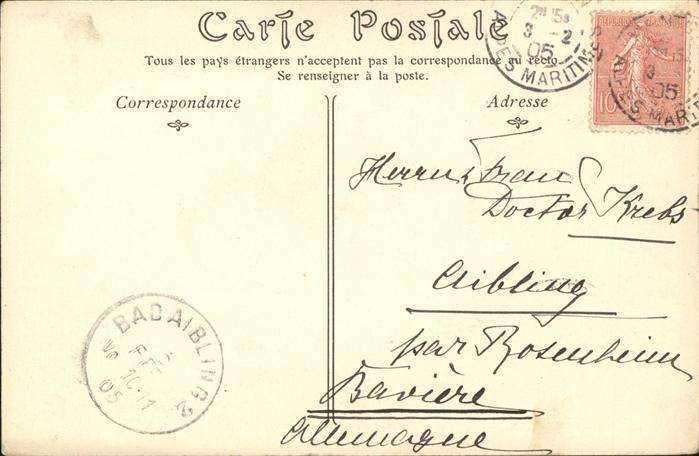 Carte Postale
Tous les pays étrangers n'acceptent pas la correspondance au recto.
Se renseigner à la poste.
Correspondance
Adresse
3 -2
05
ALPES MARITIMES
10
3
05
ALPES MARIT
Herrn & Frau
Doctor Krebs
Aibling
par Rosenheim
Bavière
Allemagne
BAD AIBLING 2
5
FEB
10-11
05